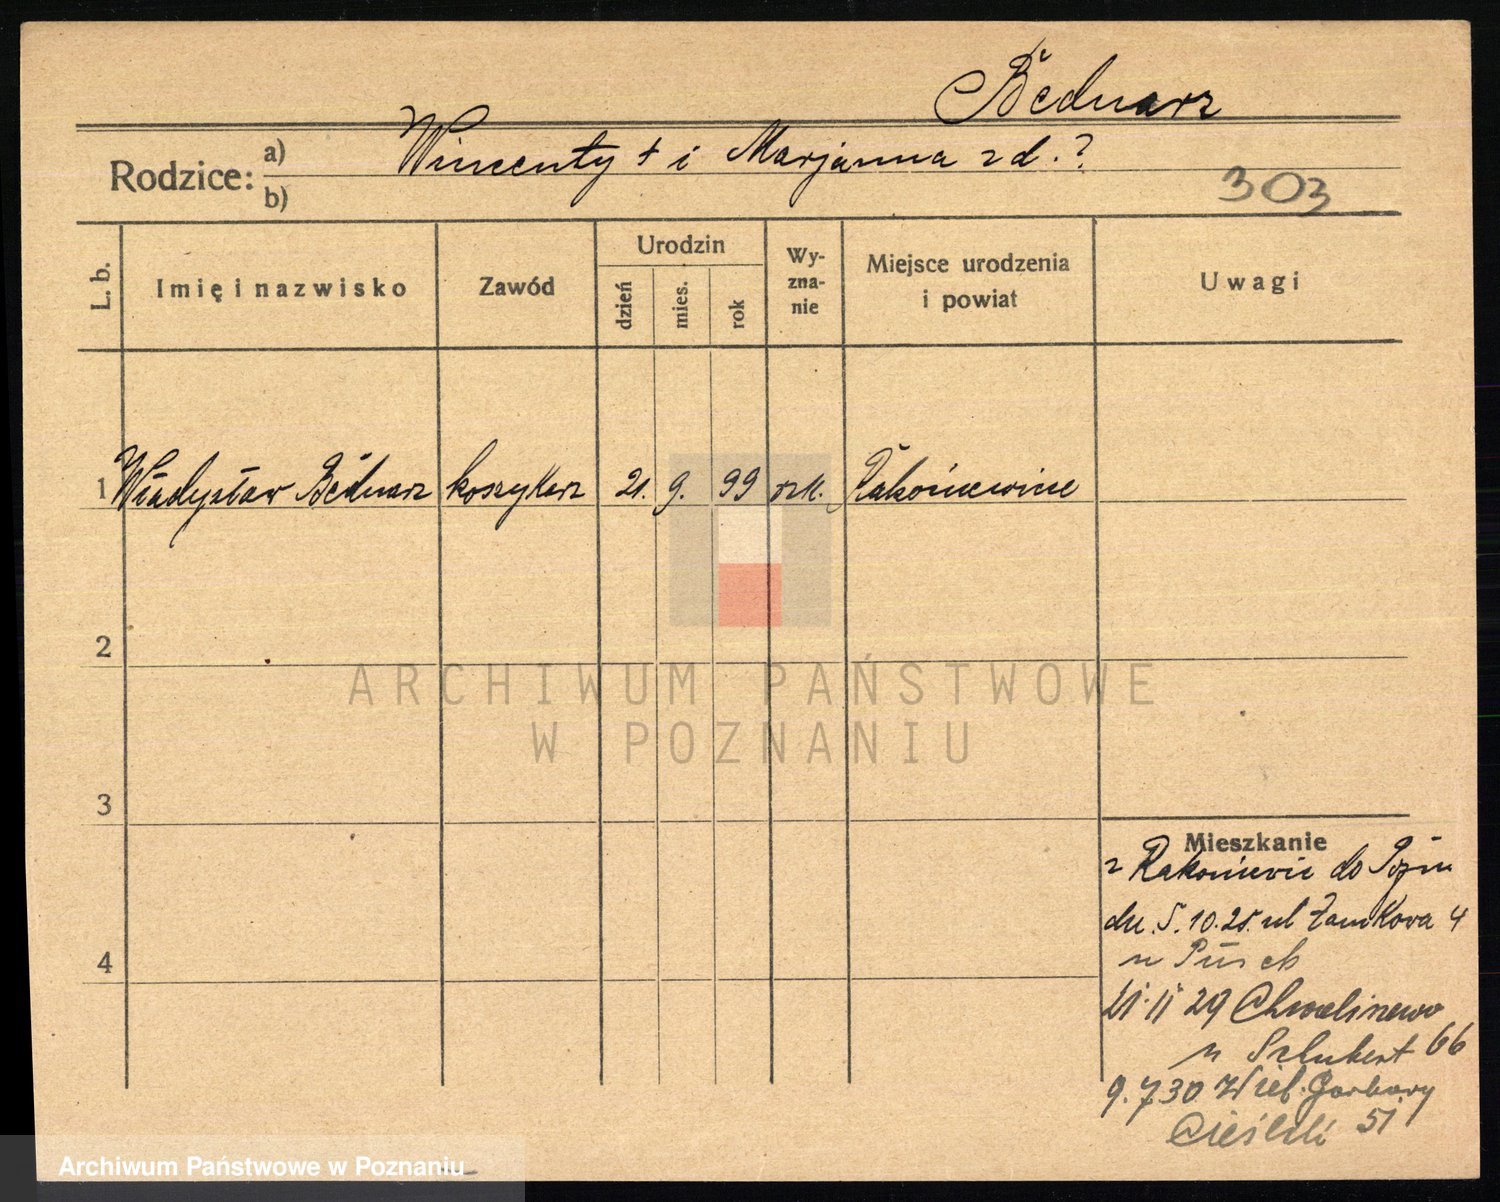 Bednarz
Rodzice: a) Wincenty + i Marjanna zd. ?
b)
303
L. b.
Imię i nazwisko
Zawód
Urodzin
dzień
mies.
rok
Wy-
zna-
nie
Miejsce urodzenia
i powiat
Uwagi
1 Władysław Bednarz koszykarz 21. 9. 99 rzk. Rakoniewice
2
ARCHIWUM PAŃSTWOWE
W POZNANIU
3
4
Mieszkanie
z Rakoniewic do Pozn
dn. 5. 10. 25. ul Zamkowa 4
u
21 11 29 Chwaliszewo
u Schubert 66
9. 7 30 Wiel. Garbary
51
Archiwum Państwowe w Poznaniu